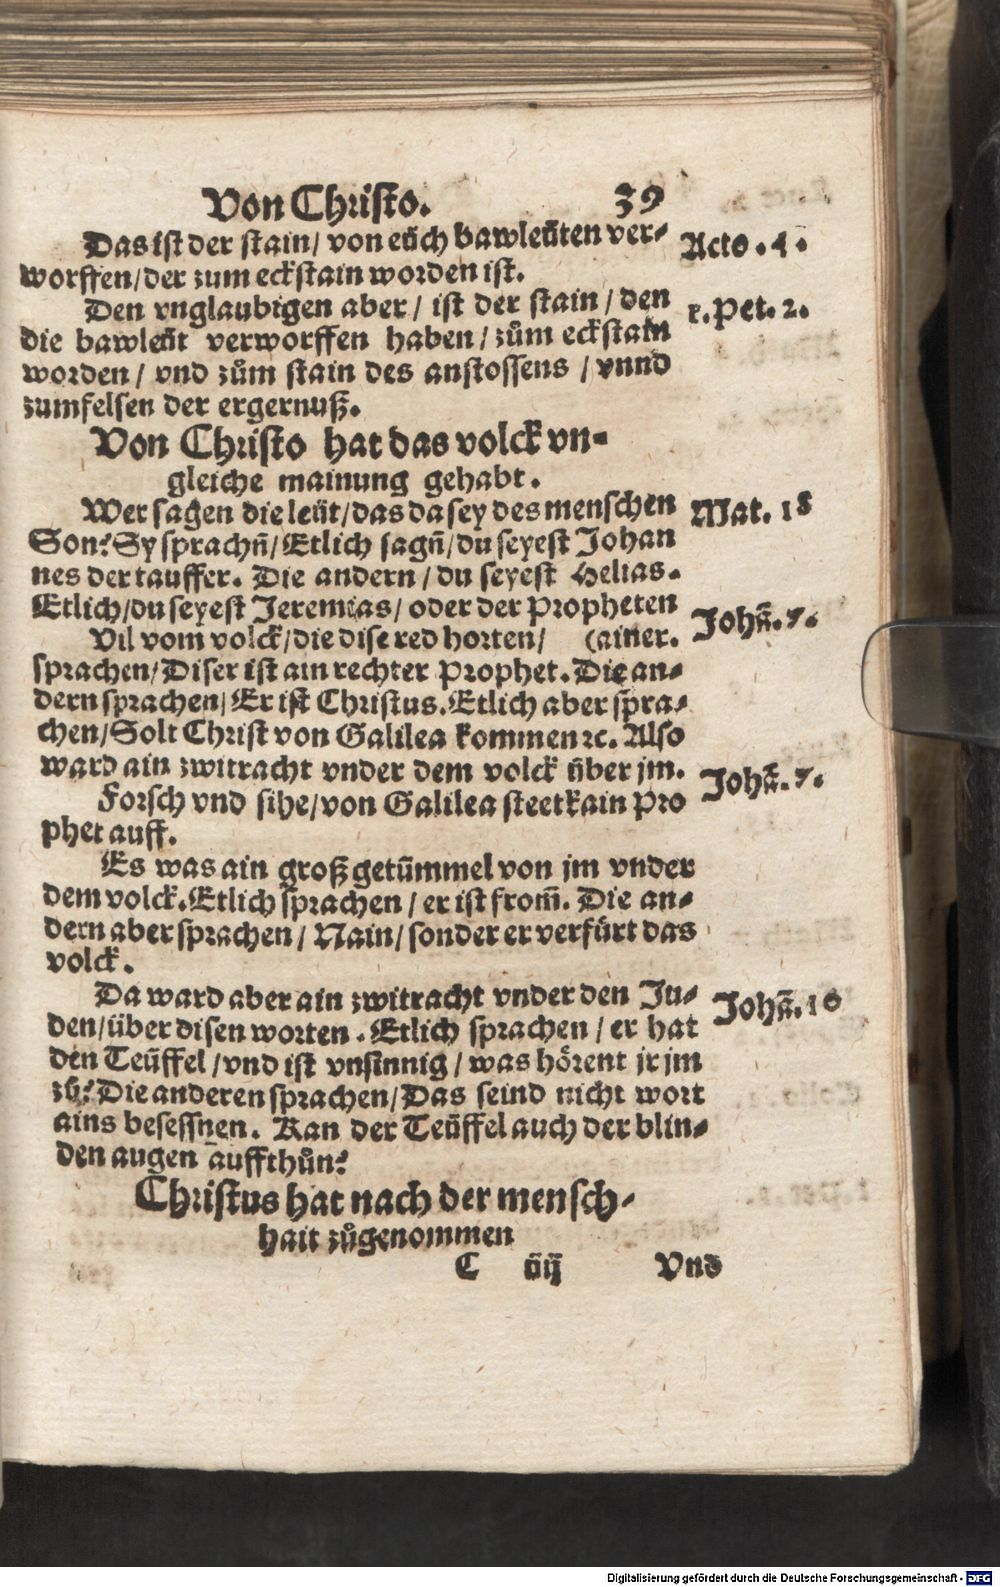 Von Christo. 39
Das ist der stain/ von eüch bawleüten ver⸗ Acto. 4.
worffen/der zum eckstain worden ist.
Den vnglaubigen aber/ ist der stain/den 1. Pet. 2.
die bawleüt verworffen haben/zům eckstain
worden/ vnd zům stain des anstossens/vnnd
zumfelsen der ergernuß.
Von Christo hat das volck vn⸗
gleiche mainung gehabt.
Wer sagen die leüt/das da sey des menschen Mat. 18
Son? Sy sprachñ/Etlich sagñ/du seyest Johan
nes der tauffer. Die andern/du seyest Helias.
Etlich/du seyest Jeremias/oder der Propheten
Vil vom volck/die dise red horten/ (ainer. Johã. 7.
sprachen/Diser ist ain rechter Prophet. Die an⸗
dern sprachen/Er ist Christus. Etlich aber spra⸗
chen/Solt Christ von Galilea kommen ꝛc. Also
ward ain zwitracht vnder dem volck über jm.
Forsch vnd sihe/von Galilea steet kain Pro Johã. 7.
phet auff.
Es was ain groß getümmel von jm vnder
dem volck. Etlich sprachen/er ist from̃. Die an⸗
dern aber sprachen/Nain/sonder er verfürt das
volck.
Da ward aber ain zwitracht vnder den Ju⸗ Johã. 10
den/über disen worten. Etlich sprachen/er hat
den Teüffel/vnd ist vnsinnig/was hörent jr jm
zů? Die anderen sprachen/Das seind nicht wort
ains besessnen. Kan der Teüffel auch der blin⸗
den augen auffthůn?
Christus hat nach der mensch⸗
hait zůgenommen
C iiij Vnd
Digitalisierung gefördert durch die Deutsche Forschungsgemeinschaft - DFG